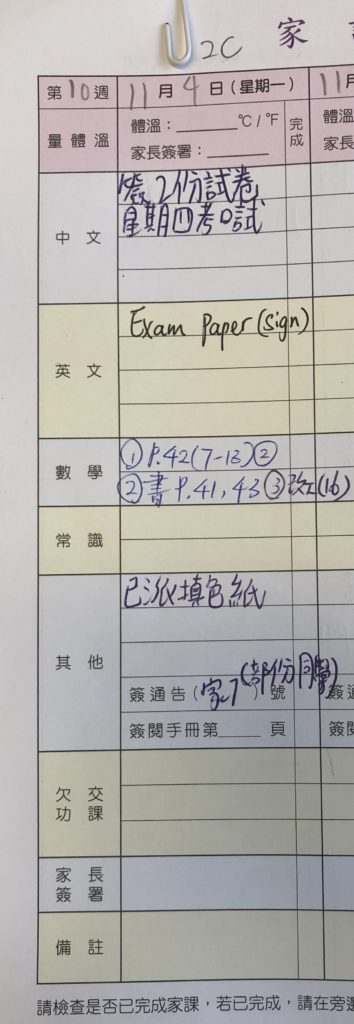 2C 家
第10週 11月4日(星期一) 11月
量體溫 體溫：______℃/℉ 完成 體溫
家長簽署：______ 家長
中文 簽2份試卷
星期四考口試
英文 Exam Paper (sign)
數學 ① P.42(7-13)②
② 書 P.41, 43 ③改工(16)
常識
其他 已派填色紙
(部份同學)
簽通告(家7)號 簽通
簽閱手冊第____頁 簽閱
欠交功課
家長簽署
備註
請檢查是否已完成家課，若已完成，請在旁邊